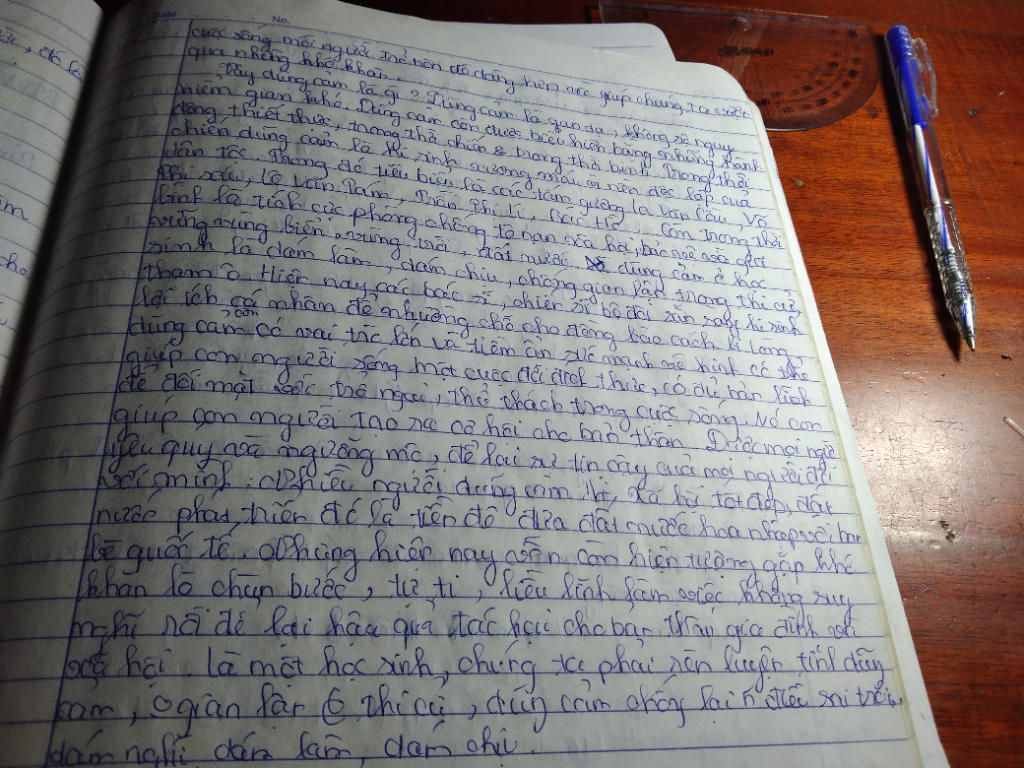 No.
cuộc sống mỗi người trở nên dễ dàng hơn việc giúp chúng ta vượt
qua những khó khăn.
Vậy dũng cảm là gì? Dũng cảm là gan dạ, không sợ nguy
hiểm gian khó. Dũng cảm còn được biểu hiện bằng những hành
động, thiết thực, trong thời chiến & trong thời bình. Trong thời
chiến dũng cảm là hi sinh xương máu vì nền độc lập của
dân tộc. Trong đó tiêu biểu là các tấm gương La Văn Cầu, Võ
Thị Sáu, Lê Văn Tám, Trần Thị Lí, Bác Hồ... Còn trong thời
bình là tích cực phòng chống tệ nạn xã hội, bảo vệ và giữ
vững vùng biển, vùng trời, đất nước. dũng cảm ở học
sinh là dám làm, dám chịu, chống gian lận trong thi cử,
tham ô. Hiện nay, các bác sĩ, chiến sĩ bộ đội sẵn sàng hi sinh
lợi ích cá nhân để nhường chỗ cho đồng bào cách li. Lòng
dũng cảm còn có vai trò lớn và tiềm ẩn sức mạnh vô hình có thể
giúp con người sống một cuộc đời đích thực, có đủ bản lĩnh
để đối mặt với trở ngại, thử thách trong cuộc sống. Nó còn
giúp con người tạo ra cơ hội cho bản thân. Được mọi người
yêu quý và ngưỡng mộ, để lại sự tin cậy của mọi người đối
với mình. Nhiều người dũng cảm thì xã hội tốt đẹp, đất
nước phát triển đó là tiền đề đưa đất nước hòa nhập với bạn
bè quốc tế. Nhưng hiện nay vẫn còn hiện tượng gặp khó
khăn là chùn bước, tự ti, liều lĩnh làm việc không suy
nghĩ rồi để lại hậu quả tác hại cho bản thân gia đình và
xã hội. Là một học sinh, chúng ta phải rèn luyện tính dũng
cảm, 0 gian lận thi cử, dũng cảm chống lại điều sai trái,
dám nghĩ dám làm, dám chịu.